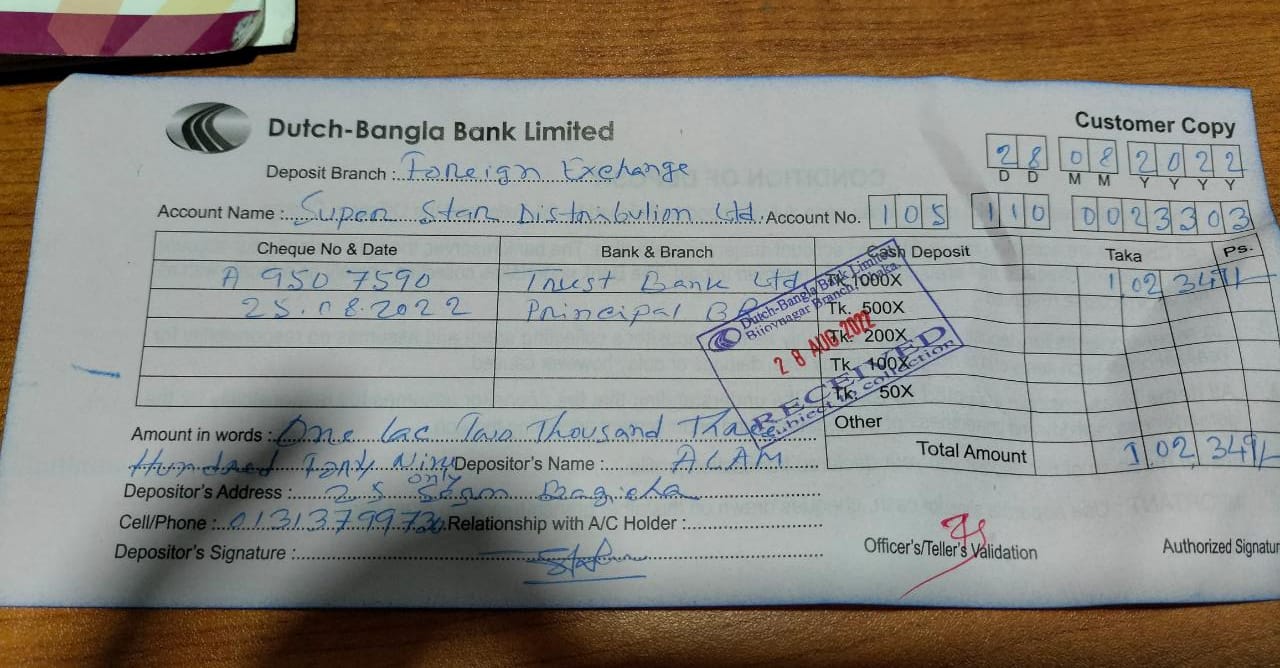 Dutch-Bangla Bank Limited
Customer Copy
28 08 2022
D D M M Y Y Y Y
Deposit Branch : Foreign Exchange
Account Name : Super Star Distribution Ltd. Account No. 105 110 0023303
Cheque No & Date Bank & Branch Cash Deposit Taka Ps.
A 9507590 Trust Bank Ltd Tk. 1000X 1,02,349/-
25.08.2022 Principal Tk. 500X
Tk. 200X
Tk. 100X
Tk. 50X
Other
Total Amount 1,02,349/-
Dutch-Bangla Bank Limited
Bijoynagar Branch, Dhaka.
28 AUG 2022
RECEIVED
Subject to collection
Amount in words : One lac Two Thousand Three
Hundred Forty Nine only Depositor's Name : ALAM
Depositor's Address : 25 Segun Bagicha
Cell/Phone : Relationship with A/C Holder :
Depositor's Signature :
Officer's/Teller's Validation
Authorized Signatur